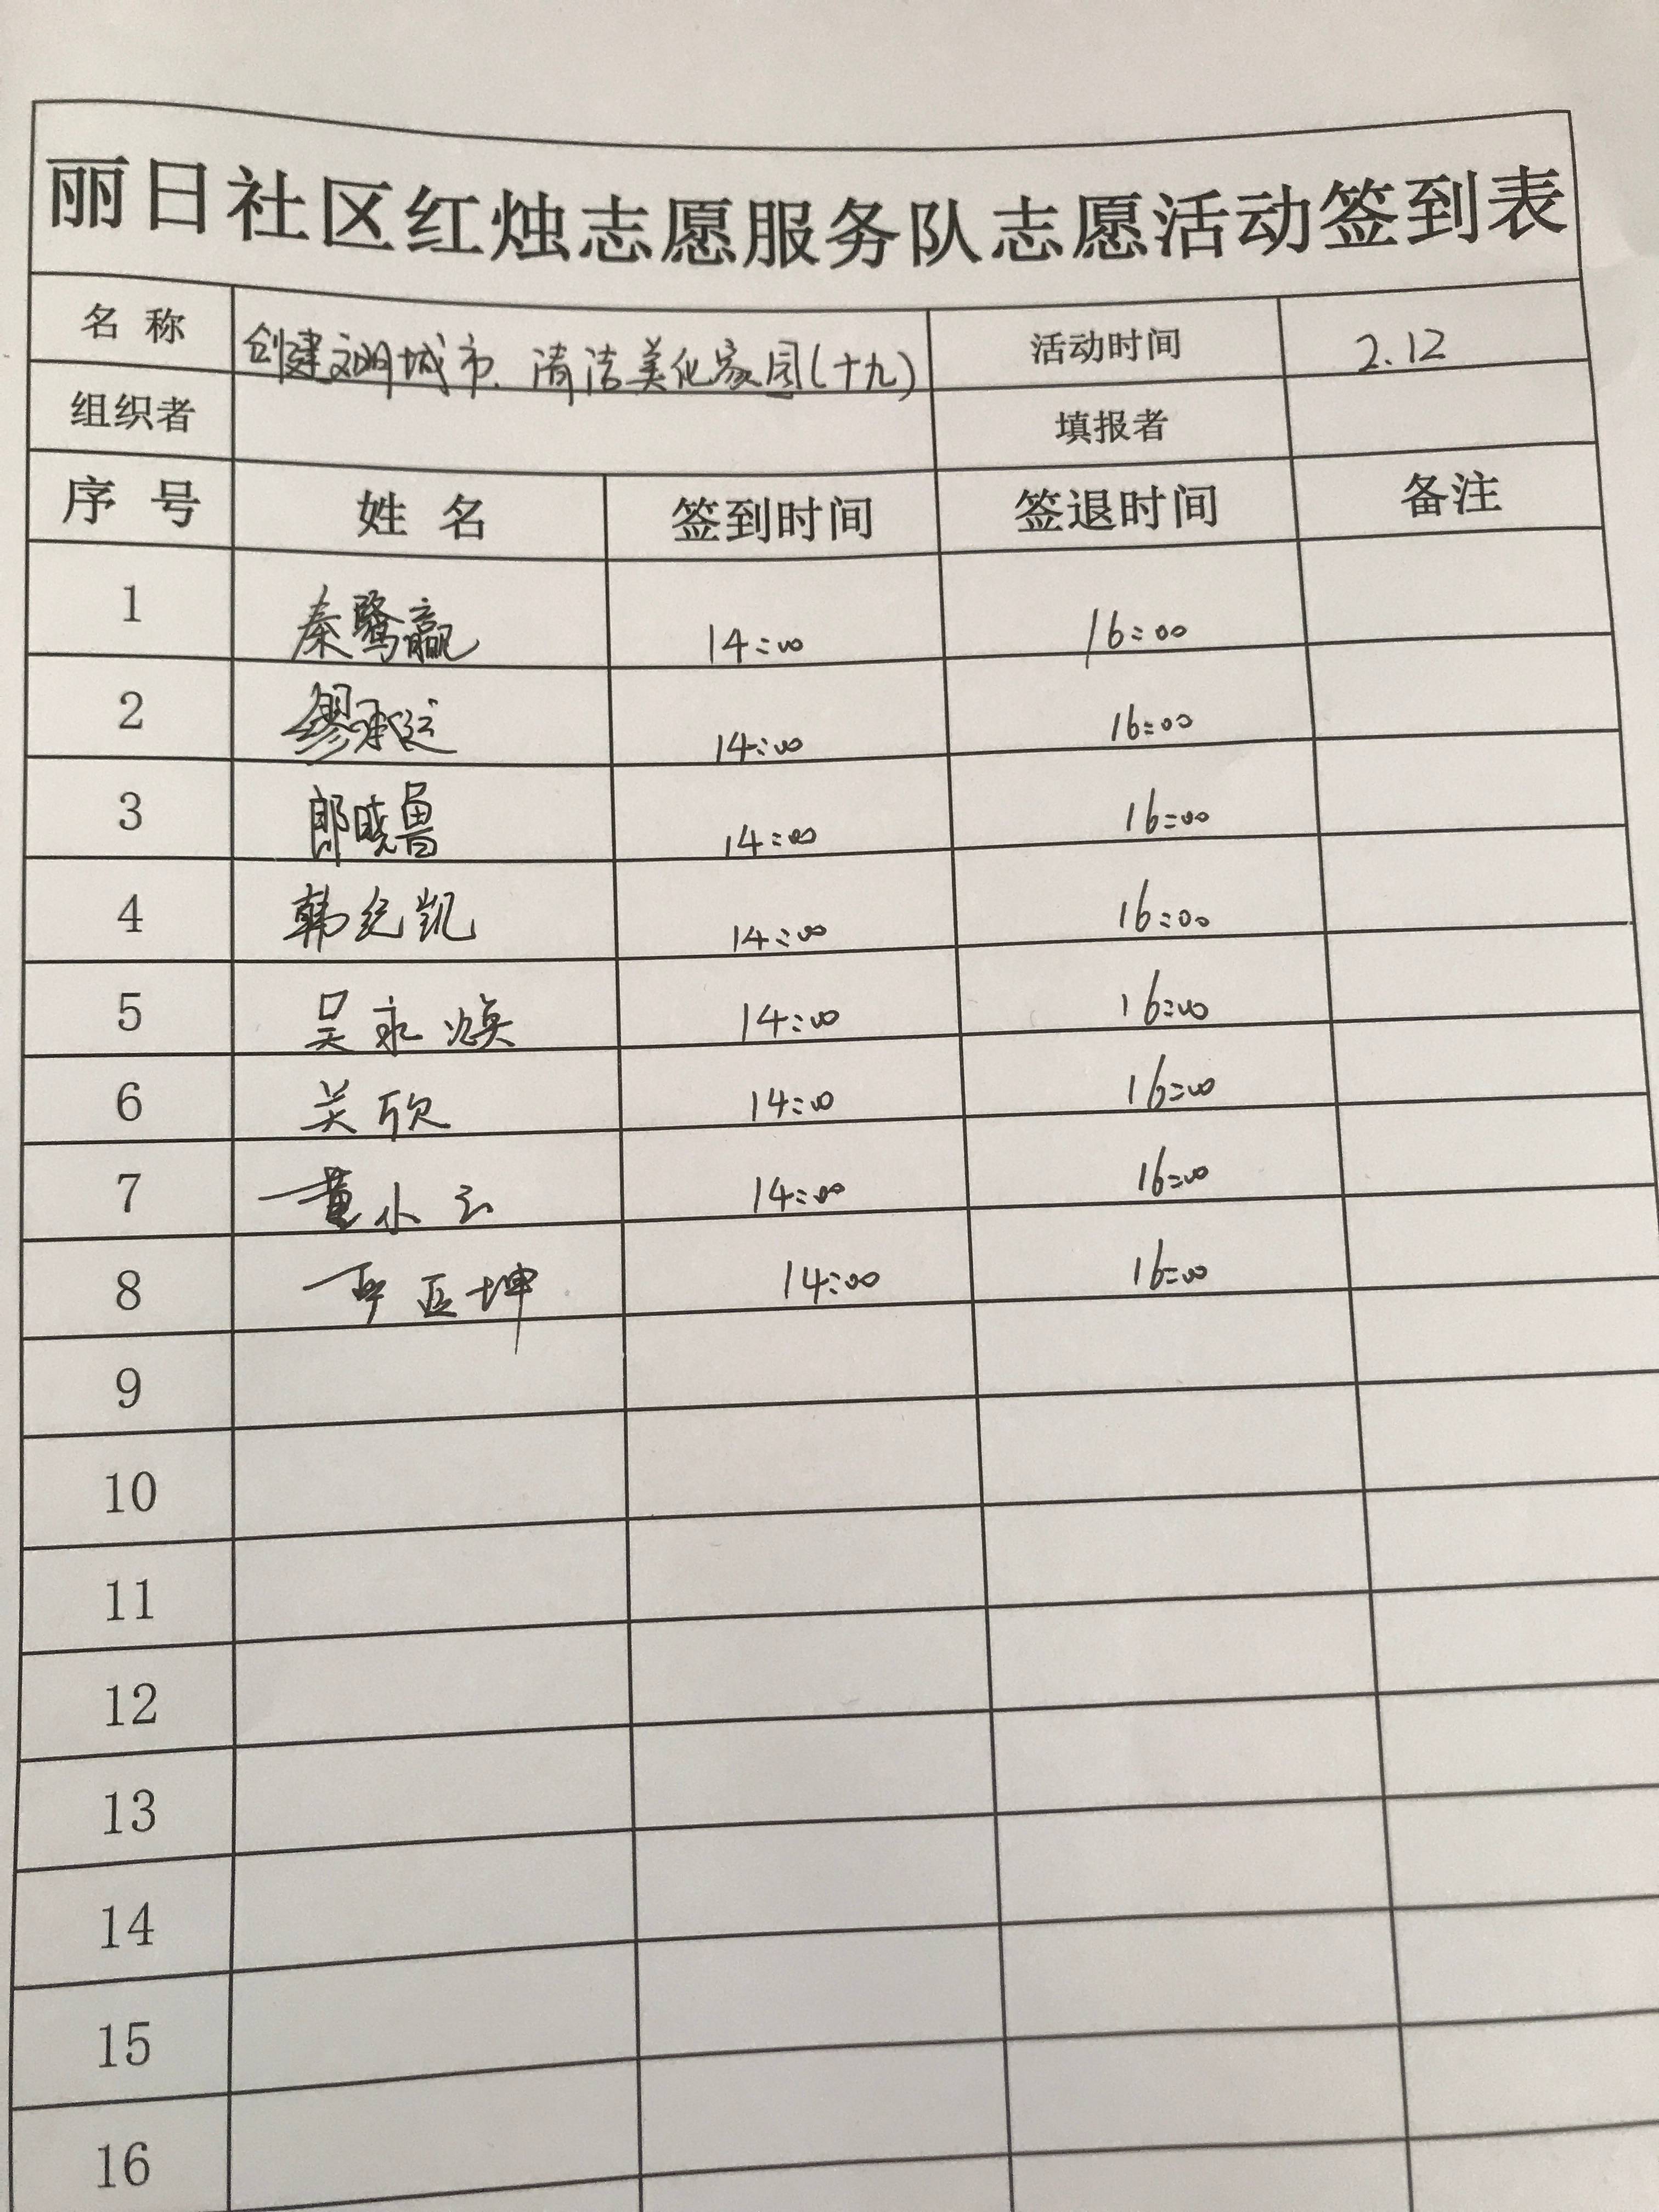 丽日社区红烛志愿服务队志愿活动签到表
名 称 创建文明城市、清洁美化家园(十九) 活动时间 2.12
组织者 填报者
序 号 姓 名 签到时间 签退时间 备注
1 秦鹭赢 14:00 16:00
2 缪承运 14:00 16:00
3 郎晓鲁 14:00 16:00
4 韩纪凯 14:00 16:00
5 吴永焕 14:00 16:00
6 关欣 14:00 16:00
7 董小云 14:00 16:00
8 14:00 16:00
9
10
11
12
13
14
15
16